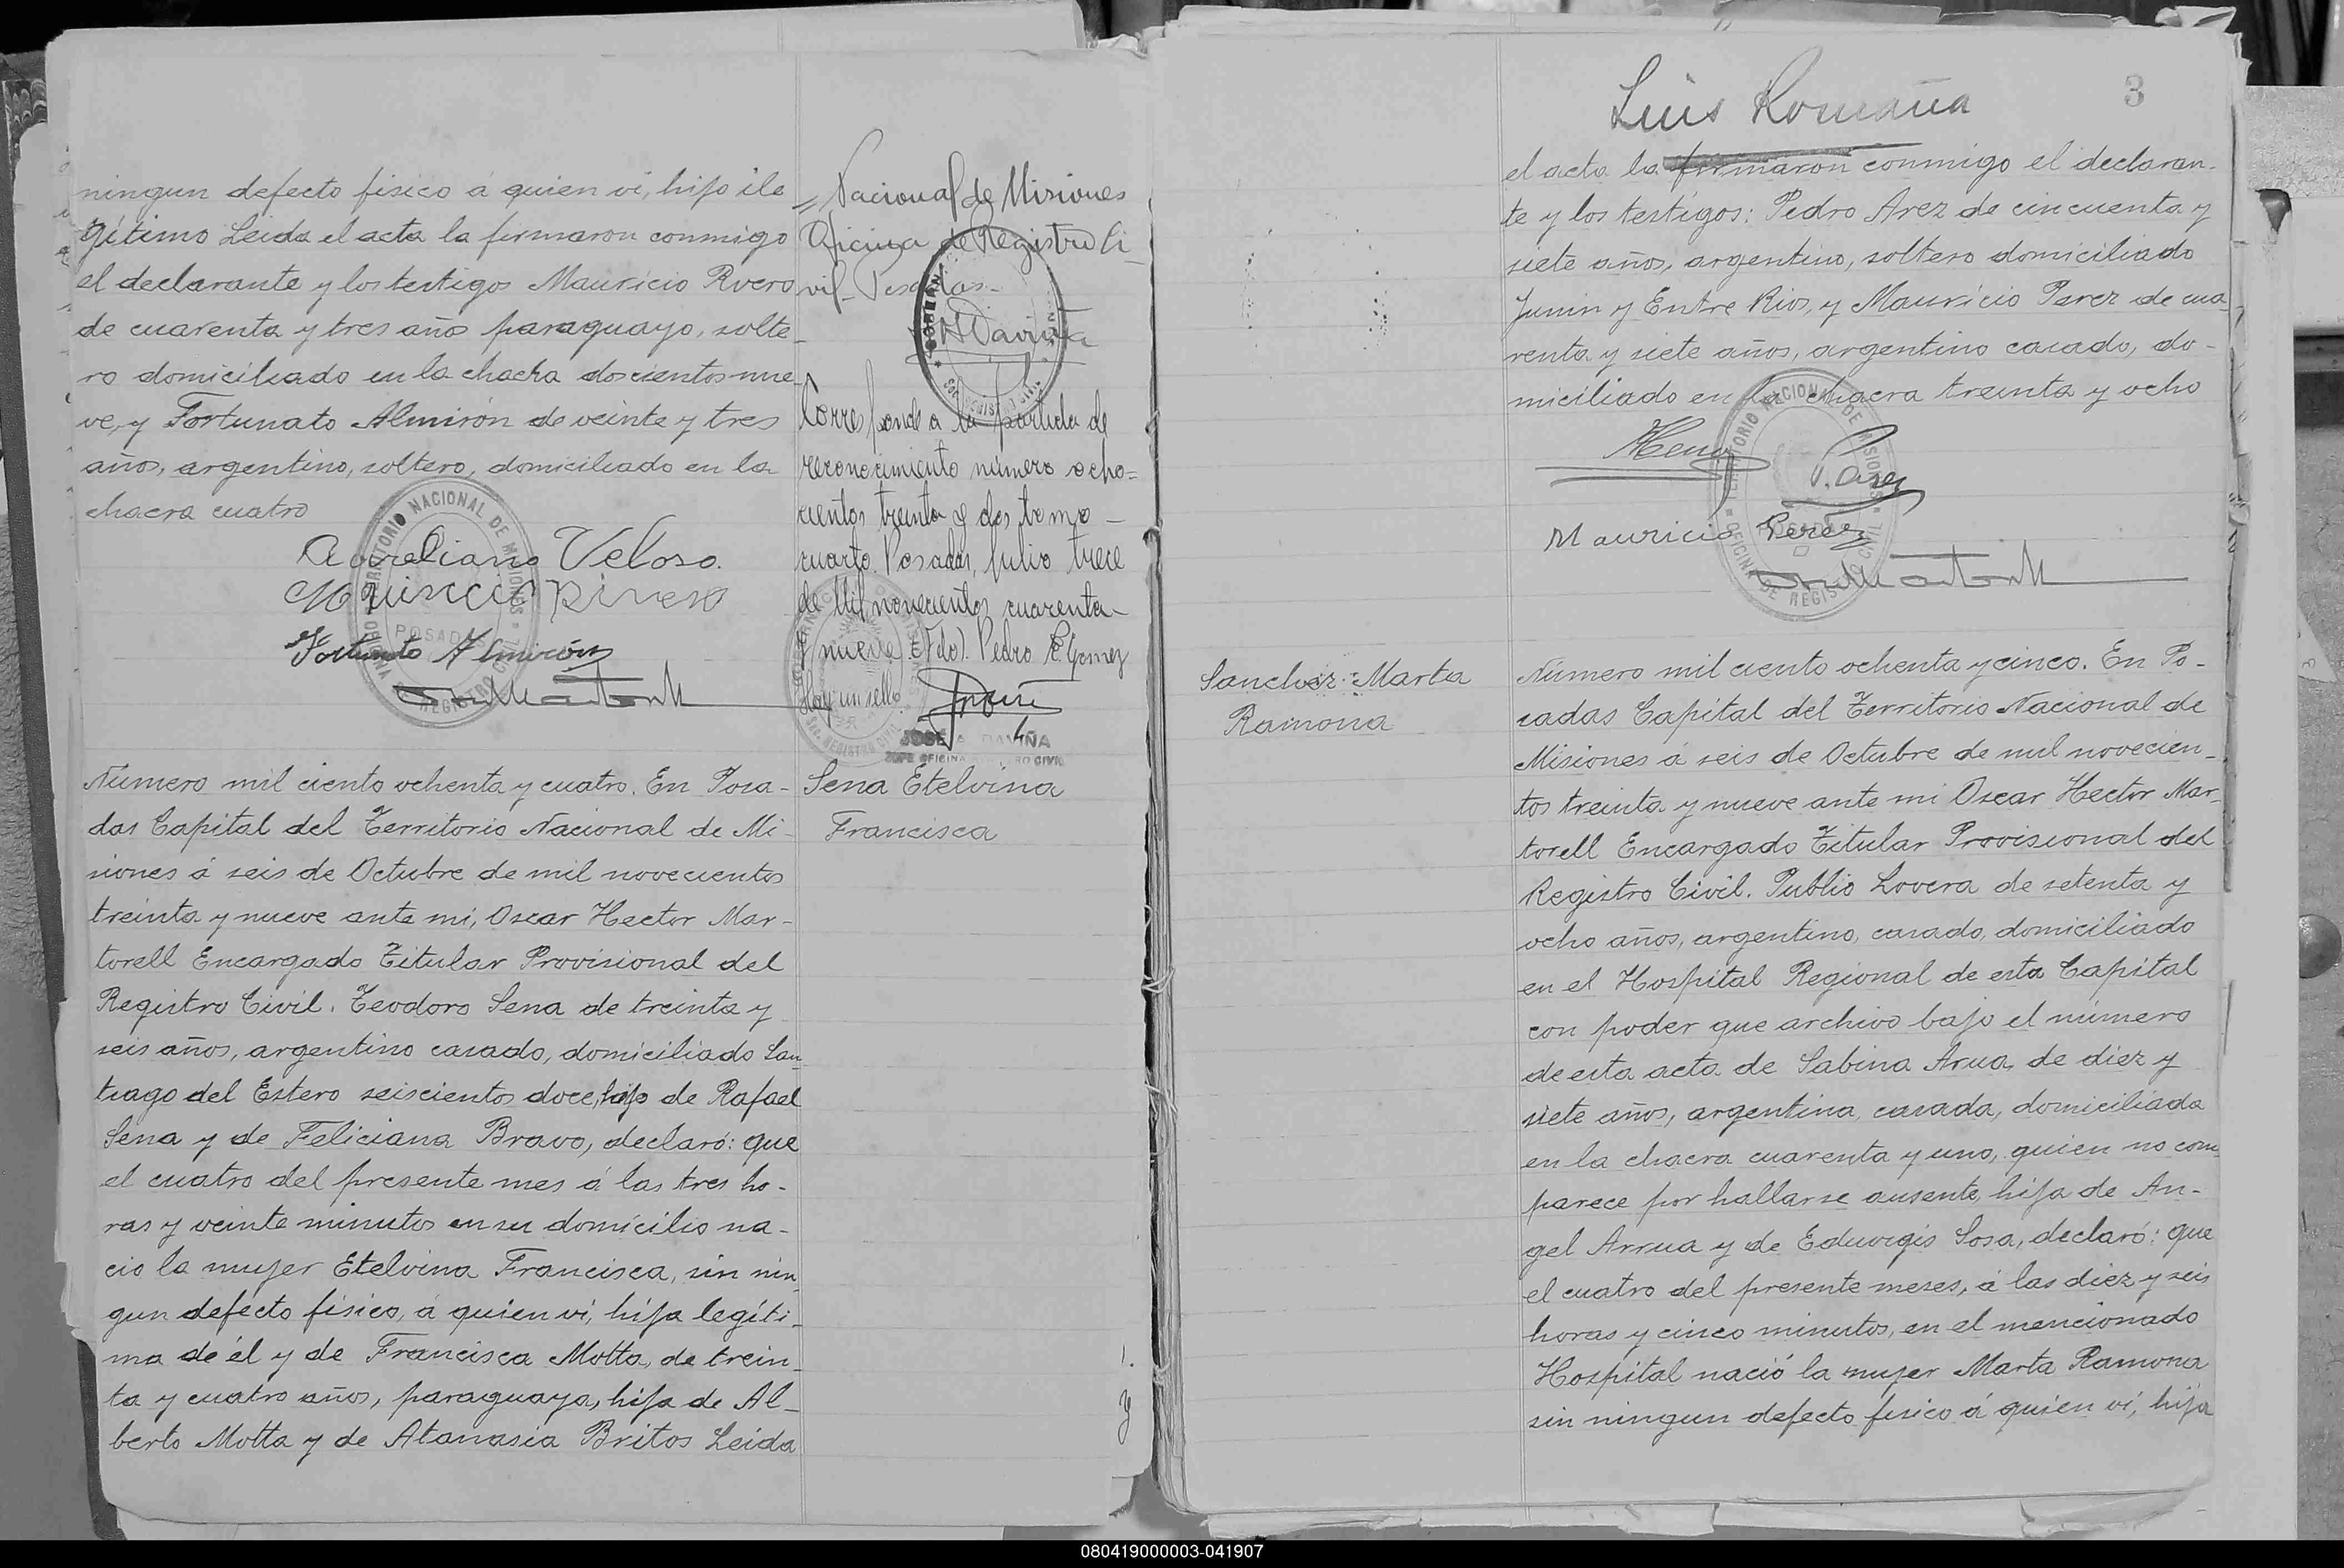 ningun defecto fisico á quien vi, hijo ile
gitimo Leida el acta la firmaron conmigo
el declarante y los testigos Mauricio Rvero
de cuarenta y tres año paraguayo, solte-
ro domiciliado en la chacra doscientos nue-
ve, y Fortunato Almirón de veinte y tres
año, argentino, soltero, domiciliado en la
chacra cuatro
Aureliano Veloso.
Fortunato Almirón
TERRITORIO NACIONAL DE MISIONES
POSADAS
OFICINA DE REGISTRO CIVIL
Número mil ciento ochenta y cuatro. En Posa-
das Capital del Territorio Nacional de Mi-
siones á seis de Octubre de mil novecientos
treinta y nueve ante mi, Oscar Hector Mar-
torell Encargado Titular Provisional del
Registro Civil. Teodoro Sena de treinta y
seis años, argentino casado, domiciliado San
tiago del Estero seiscientos doce, hijo de Rafael
Sena y de Feliciana Bravo, declaró: que
el cuatro del presente mes á las tres ho-
ras y veinte minutos en su domicilio na-
cio la mujer Etelvina Francisca, sin nin
gun defecto físico, á quien vi, hija legíti-
ma de él y de Francisca Motta, de trein-
ta y cuatro años, paraguaya, hija de Al-
berto Motta y de Atanasia Britos Leida
Nacional de Misiones
Oficina de Registro Ci-
vil- Posadas-
Corresponde a la partida de
reconocimiento número ocho-
cientos treinta y dos tomo -
cuarto. Posadas, Julio trece
de Mil novecientos cuarenta-
y nueve (Fdo). Pedro E. Gomez
Hay un sello.
JOSE DAVIÑA
JEFE OFICINA REGISTRO CIVIL
Sena Etelvina
Francisca
Luis Romaña
3
el acta la firmaron conmigo el declaran-
te y los testigos: Pedro Arez de cincuenta y
siete años, argentino, soltero domiciliado
Junin y Entre Rios, y Mauricio Perez de cua
renta y siete años, argentino casado, do-
miciliado en la chacra treinta y ocho
Mauricio Perez
TERRITORIO NACIONAL DE MISIONES
POSADAS
OFICINA DE REGISTRO CIVIL
Sanchez Marta
Ramona
Número mil ciento ochenta y cinco. En Po-
sadas Capital del Territorio Nacional de
Misiones á seis de Octubre de mil novecien-
tos treinta y nueve ante mi Oscar Hector Mar-
torell Encargado Titular Provisional del
Registro Civil. Publio Lovera de setenta y
ocho años, argentino, casado, domiciliado
en el Hospital Regional de esta Capital
con poder que archivo bajo el número
de esta acta de Sabina Arua, de diez y
siete años, argentina, casada, domiciliada
en la chacra cuarenta y uno, quien no com
parece por hallarse ausente, hija de An-
gel Arrua y de Eduvigis Sosa, declaró: que
el cuatro del presente meses, á las diez y seis
horas y cinco minutos, en el mencionado
Hospital nació la mujer Marta Ramona
sin ningun defecto fisico á quien vi, hija
080419000003-041907